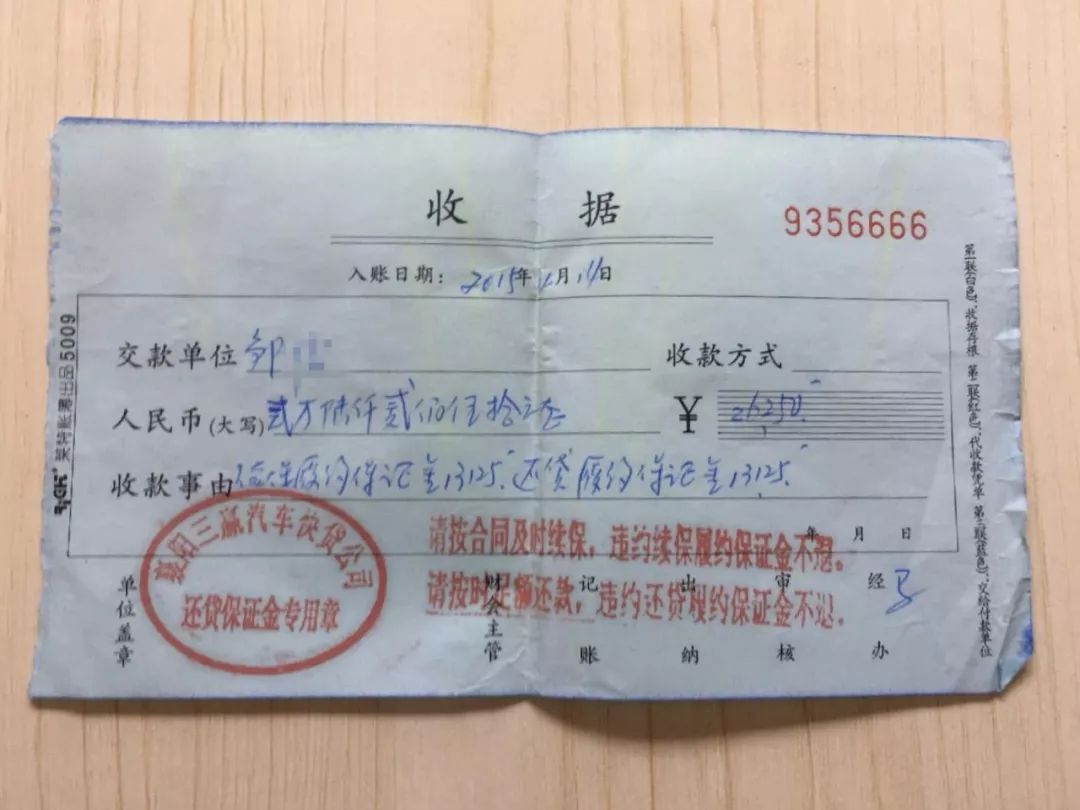 收 据
9356666
入账日期：2015年 月14日
交款单位 邹
收款方式
人民币(大写) 贰万陆仟贰佰伍拾元整
¥ 26250
收款事由 续保履约保证金13125 还贷履约保证金13125
年 月 日
请按合同及时续保，违约续保履约保证金不退。
请按时足额还款，违约还贷履约保证金不退。
单位盖章
襄阳三赢汽车快贷公司
还贷保证金专用章
财会主管
记账
出纳
审核
经办
第一联(白色)、收据存根 第二联(红色)、代收款凭单 第三联(蓝色)、交给付款单位
5009